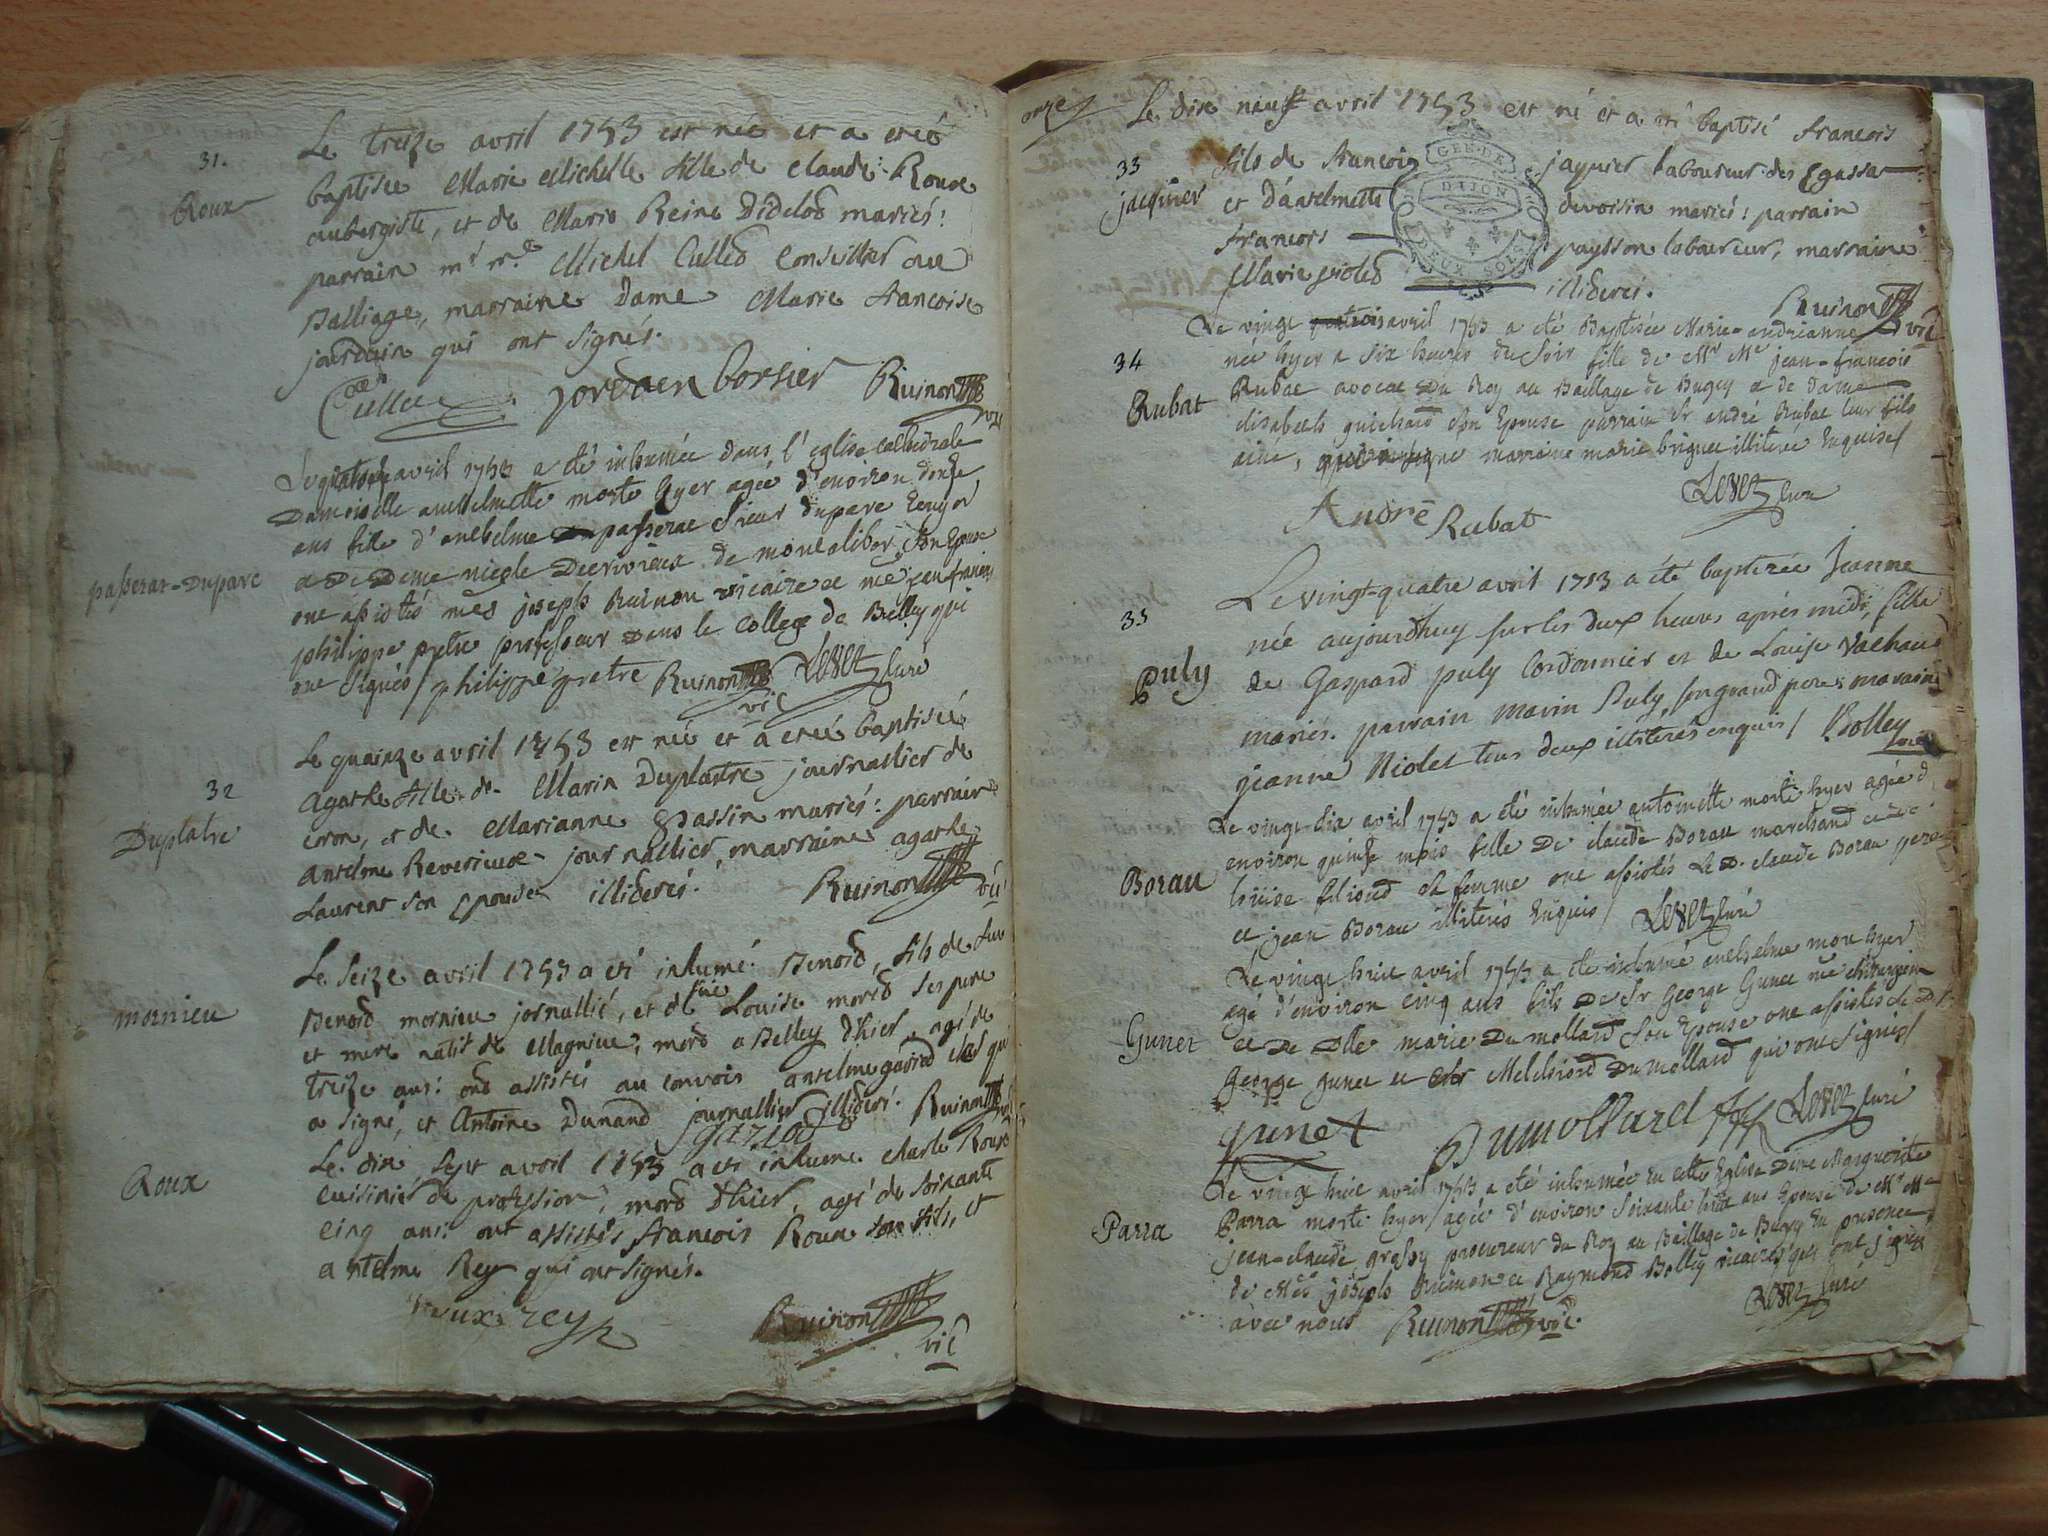 31.
Roux
Le treize avril 1753 est née et a etéé
baptisée Marie Michelle fille de Claude Roux
aubergiste, et de Marie Reine Didelod mariés:
parrain mr me Michel Culled Conseiller au
Balliage, marraine Dame Marie francoise
jourdain qui ont signés.
Cullet jordaen borsier Ruinon
vic
passerat-Duparc
Le quatorze avril 1753 a été inhumée dans l'église cathedrale
Damoiselle anthelmette morte hyer agée d'environ donze
ans fille d'anthelme passerat sieur Duparc
a De Dame nicole De montalibor, son Epouse
ont assistés mes joseph Ruinon vicaire et me jean francois
philippe pretre professeur Dans le College de Belley qui
ont signés / philippe pretre Ruinon Levet Curé
vic
32
Duplatre
Le quainze avril 1753 est née et a etéé baptisée
agathe fille de Marin Duplastre journallier de
ceron, et de Marianne Gassin mariés: parrain
antelme Reverieux journallier, marraine agathe
Laurent son Epouse illiderés. Ruinon
vic
mornieu
Le seize avril 1753 a eté inhumé Benoid, fils de fux
Benoid mornieu jornallié, et de fuië Louise mored ses pere
et mere natif de Magnieu, mord a Belley d'hier, agé de
treize ans: ond assistés au convois antelme gaisiod clerc qui
a signé, et Antoine Dunand journallier illideré. Ruinon vic
gaziod
Roux
Le dix sept avril 1753 a eté inhumé charle Roux
cuisinié de profession, mord d'hier, agé de soixante
cinq ans: ont assistés francois Roux son fils, et
antelme Rey qui ont signés.
roux rey
Ruinon
vic
onze
Le dix neuf avril 1753 est né et a eté baptisé francois
33
jacquier
fils de francois jaquier laboureur des Ecassa
et d'antelmette devoisin mariés: parrain
francois paysson laboureur, marraine
Marie violed illiderés.
GEN. DE
DIJON
DEUX SOLS
Ruinon vic
34
Rubat
Le vingt avril 1753 a été Baptisée Marie-andrianne
née hyer a six heures du soir fille de Mr Me jean-francois
Rubat avocat Du Roy au Bailliage de Bugey & de Dame
elisabeth guichard son Epouse parrain Sr andré Rubat leur fils
ainé, maraine marie briguet illiterée Enquise/
André Rubat
Levet Curé
35
Puly
Le vingt-quatre avril 1753 a été baptisée Jeanne
née aujourdhuy sur les deux heures après midi, fille
de Gaspard puly Cordonnier et de Louise Vachaud
mariés. parrain marin Puly, son grand pere; maraine
jeanne Niolet tous deux illiterés enquis / Bolley
vic
Borau
Le vingt-six avril 1753 a été inhumée antoinette morte hyer agée d
environ quinze mois fille De claude Borau marchand et de
louise filioud sa femme ont assistés Le D. claude Borau pere
et jean Borau illiterés Enquis / Levet Curé
Gunet
Le vingt huit avril 1753 a été inhumé anthelme mort hyer
agé d'environ cinq ans fils De Sr George Gunet me chirurgien
et De Dlle marie Dumollard son Epouse ont assistés le D. Sr
george gunet et Sr Melchiord Dumollard qui ont signés/
gunet Dumollard Levet Curé
Parra
Le vingt huit avril 1753 a été inhumée En cette Eglise Dme Marguerite
Parra morte hyer / agée d'environ soixante huit ans Epouse de Mr Me
jean-claude grassy procureur du Roy au Bailliage de Bugey En presence
de Mes joseph Ruinon et Raymond Bolley vicaires qui ont signés
avec nous Ruinon vic. Levet Curé